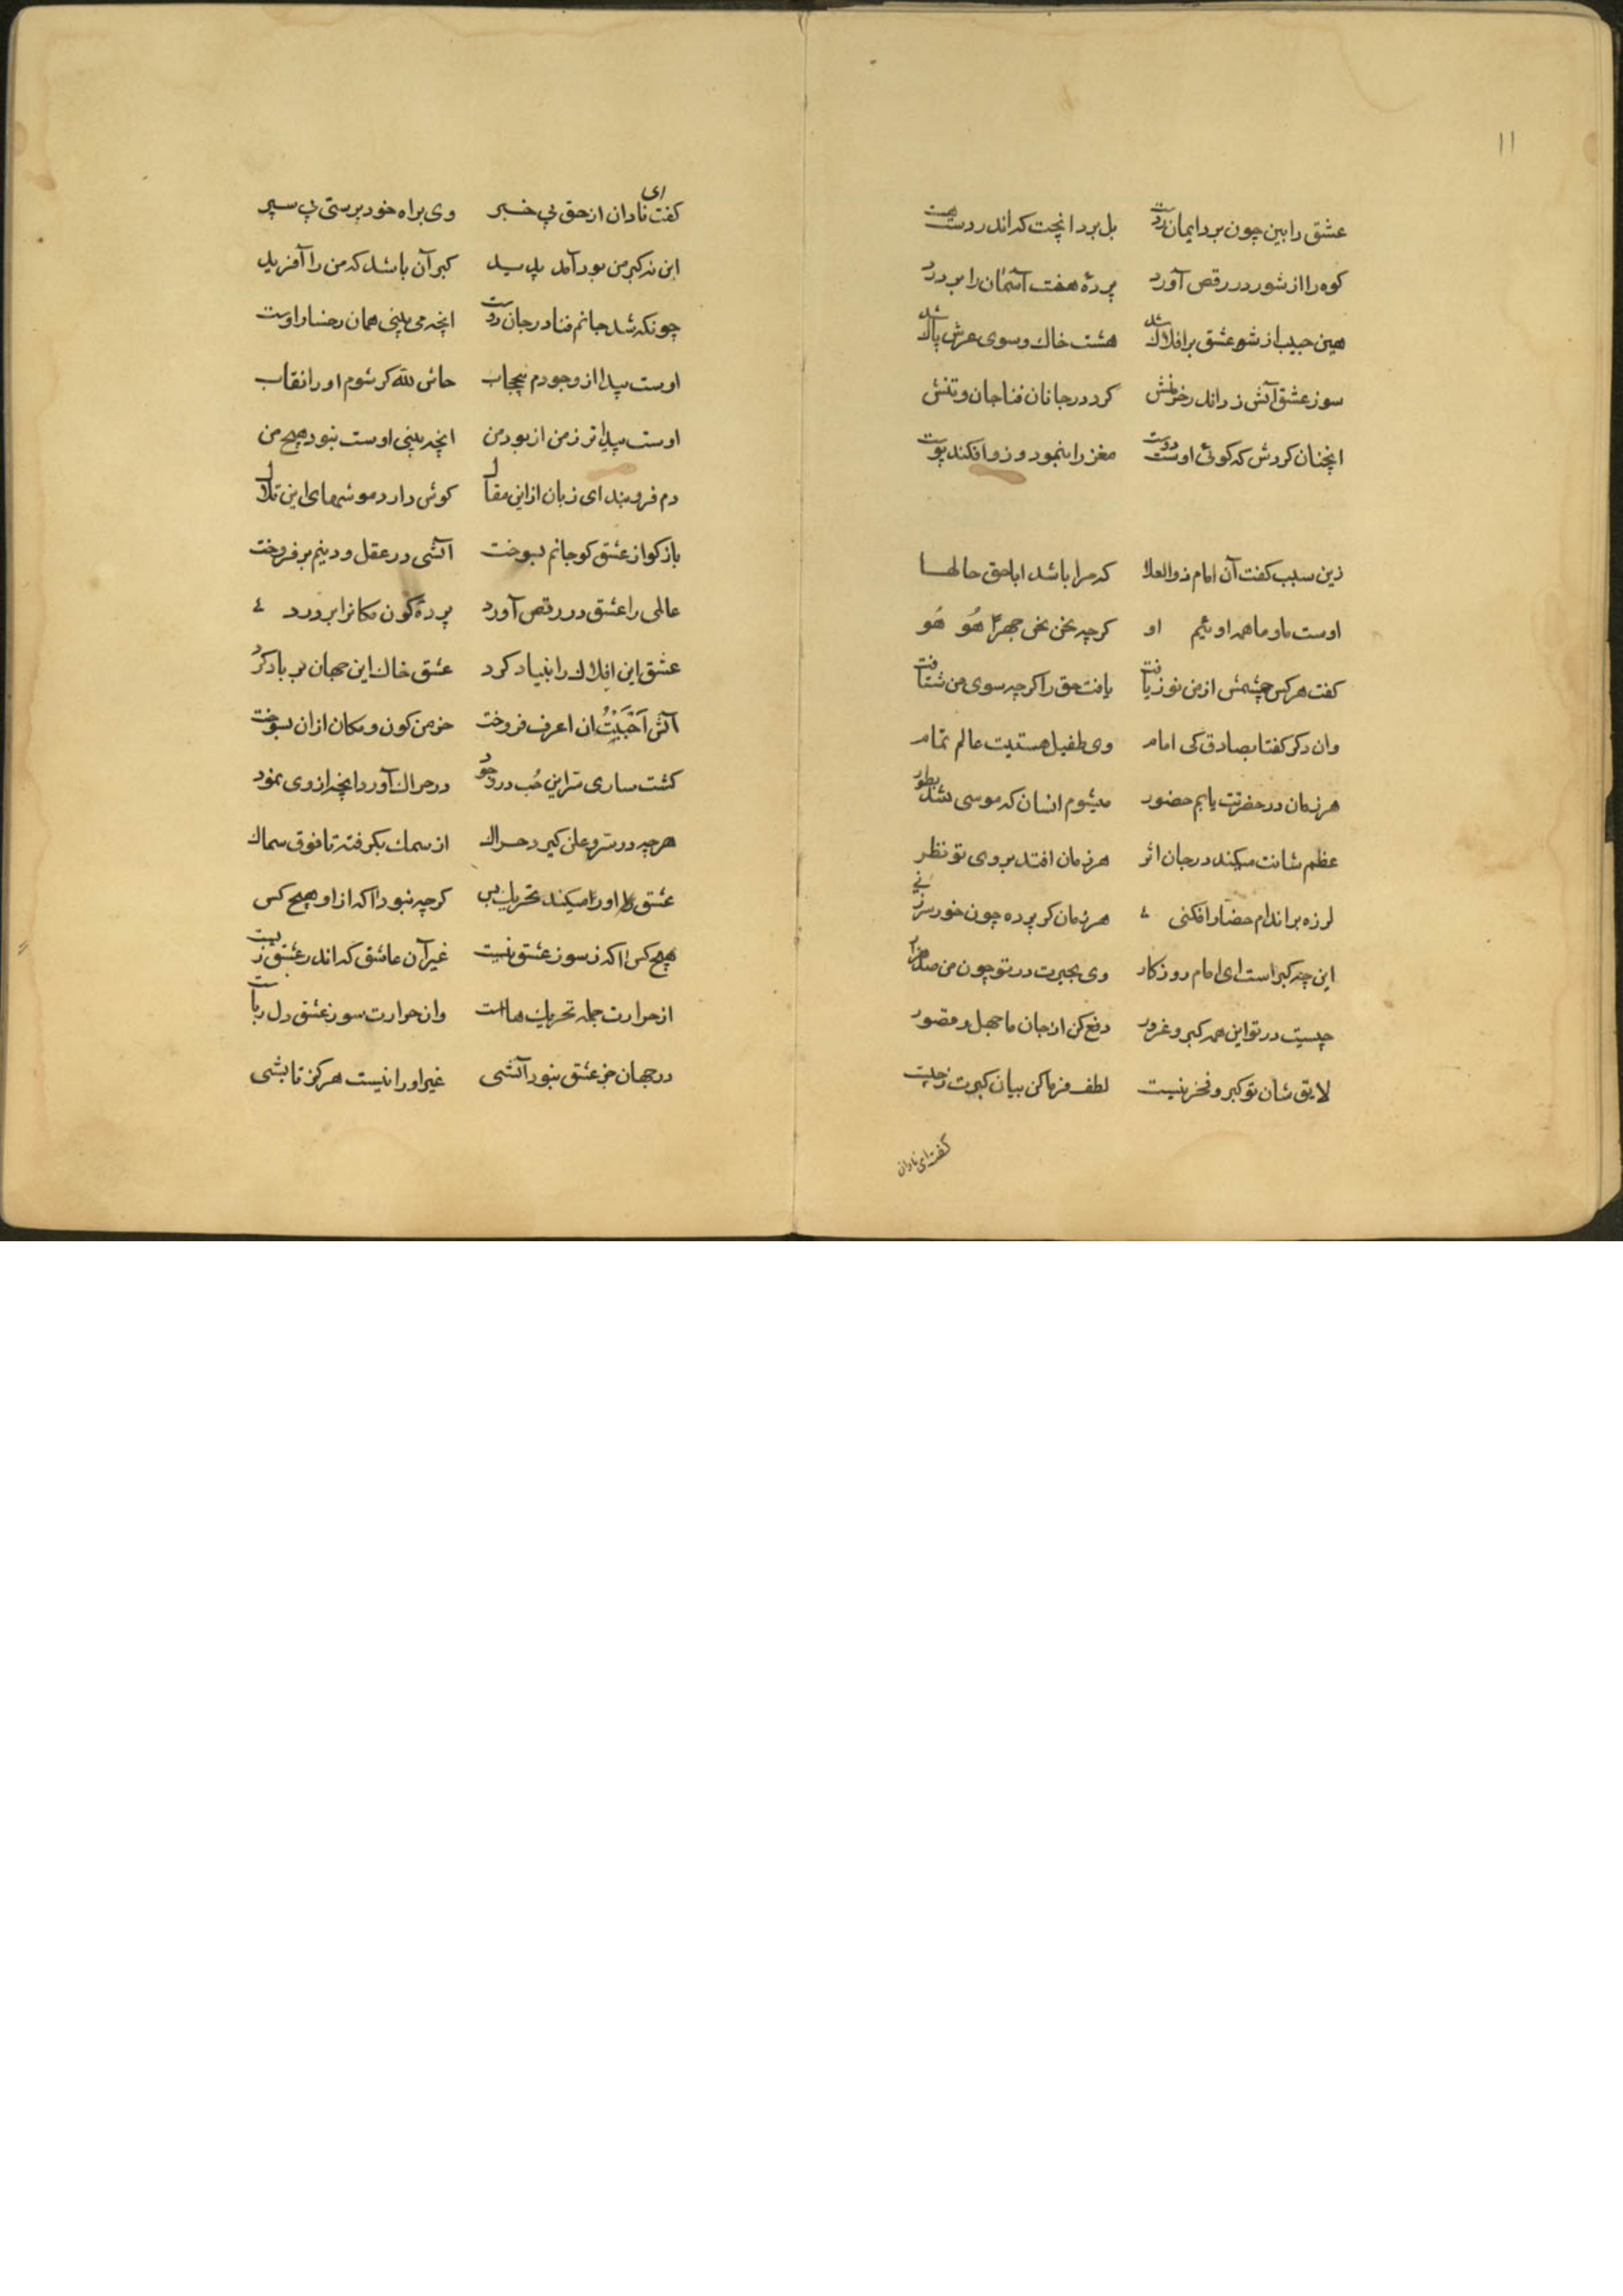 ۱۱
عشق را بین چون برد ایمان ز دست بل برد انچت که اندر دست هست
کوه را از شور در رقص آورد پردهٔ هفت آسمان را بر درد
هین حبیب از شور عشق بر افلاک شد هشت خاک و سوی عرش پاک شد
سوز عشق آتش زد اندر خرمنش کرد در جانان فنا جان و تنش
انچنان کردش که کوئی اوست دوست مغز را بنمود و زو افکند پوست
زین سبب کفت آن امام ذو العلا که مرا باشد ابا حق حالها
اوست ما و ما همه اوئیم او کرچه نحن نحن جهرًا هُو هُو
کفت هر کس چشمش از من نور یافت یافت حق را کرچه سوی من شتافت
وان دکر کفتا بصادق کی امام وی طفیل هستیت عالم تمام
هر زمان در حضرتت یابم حضور میشوم انسان که موسی شد بطور
عظم شانت میکند در جان اثر هر زمان افتد بروی تو نظر
لرزه بر اندام حضار افکنی هر زمان کز پرده چون خور سر زنی
این چه کبر است ای امام روزکار وی بحیرت در تو چون من صد هزار
چیست در تو این همه کبر و غرور دفع کن از جان ما جهل و قصور
لایق شان تو کبر و فخر نیست لطف فرما کن بیان کبرت ز چیست
کفت ای نادان
کفت ای نادان از حق بی خبر وی براه خود پرستی پی سپر
این نه کبر من بود آمد پدید کبر آن باشد که من را آفرید
چونکه شد جانم فنا در جان دوست انچه می بینی همان رخسار اوست
اوست پیدا از وجودم بیحجاب حاش لله کر شوم او را نقاب
اوست پیداتر ز من از بود من انچه بینی اوست نبود هیچ من
دم فرو بند ای زبان از این مقال کوش دارد موشهای این تلال
باز کو از عشق کو جانم بسوخت آتشی در عقل و دینم بر فروخت
عالمی را عشق در رقص آورد پردهٔ کون مکانرا بر درد
عشق این افلاک را بنیاد کرد عشق خاک این جهان بر باد کرد
آتش اَحْبَبْتُ ان اعرف فروخت خرمن کون و مکان از ان بسوخت
کشت ساری سّر این حُب در وجود در حراک آورد انچه از وی نمود
هرچه در سّر و علن کیرد حراک از سمک بکرفته تا فوق سماک
عشق او را میکند تحریک بس کرچه نبود آکه از او هیچ کس
هیچ کس آکه ز سوز عشق نیست غیر آن عاشق که اندر عشق زیست
از حرارت جمله تحریک هاست وان حرارت سوز عشق دل رباست
در جهان جز عشق نبود آتشی غیر او را نیست هرکز تابشی